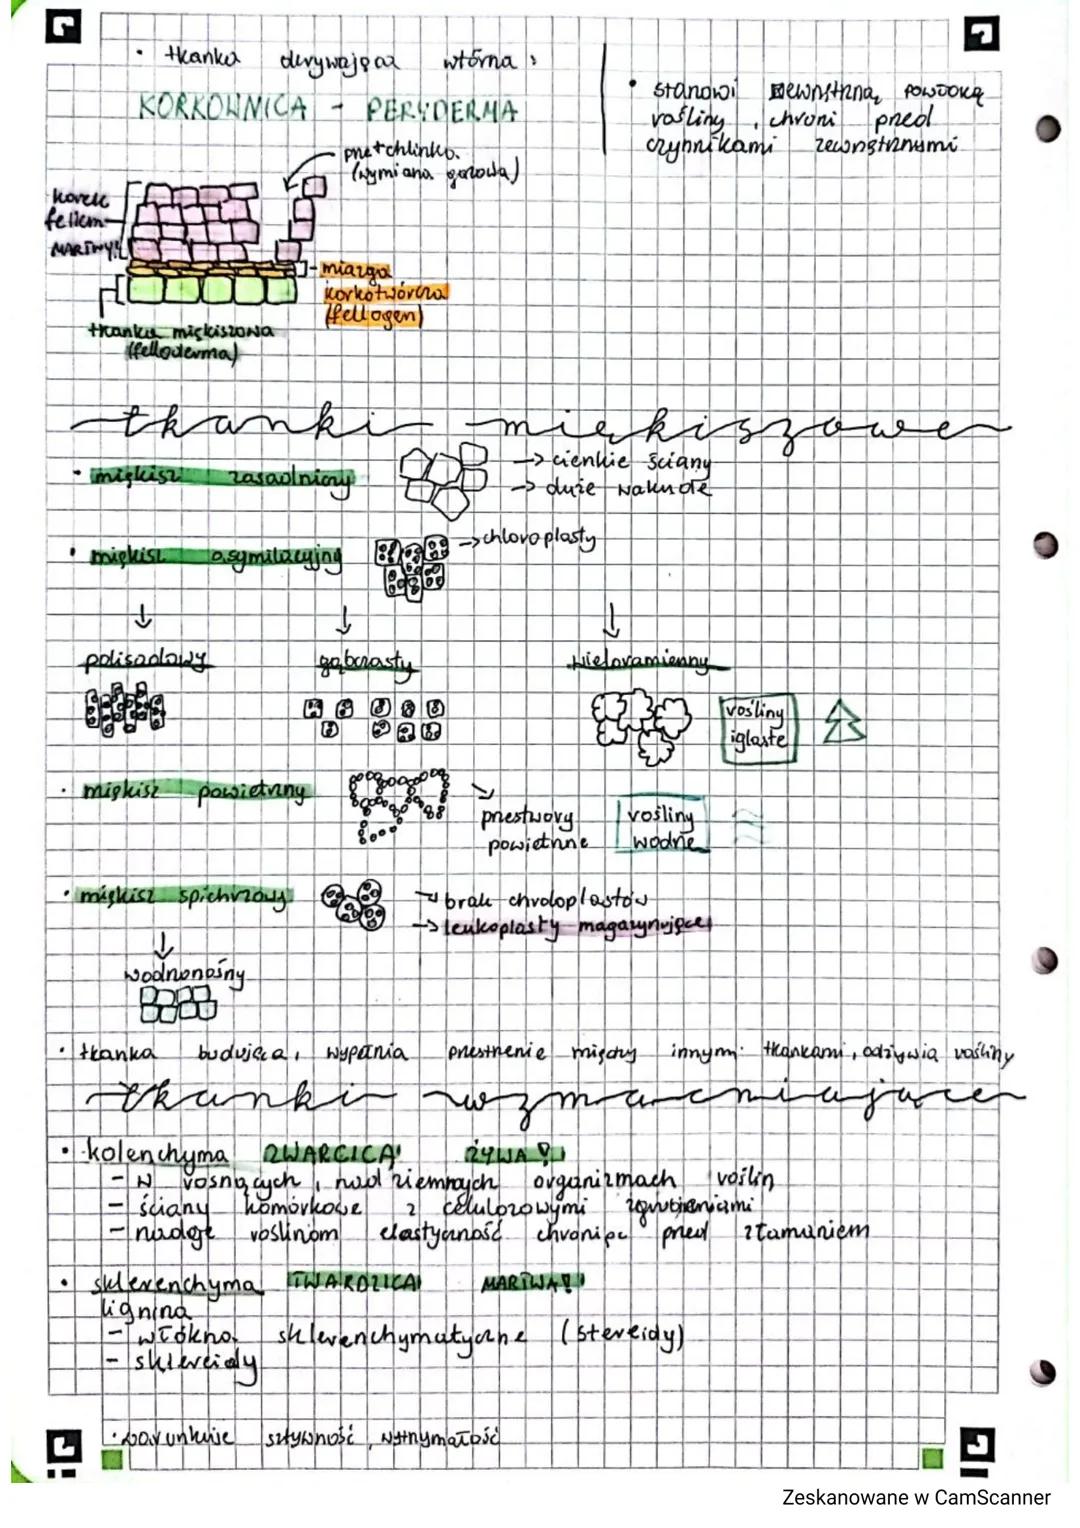 • tkanka okrywająca wtórna:
KORKOWNICA - PERYDERMA
• stanowi zewnętrzną powłokę
rośliny, chroni przed
czynnikami zewnętrznymi
przetchlinka
(wymiana gazowa)
korek
fellem
MARTWY!
miazga
korkotwórcza
(fellogen)
tkanka miękiszowa
(felloderma)
tkanki miękiszowe
• miękisz zasadniczy
→ cienkie ściany
→ duże wakuole
• miękisz asymilacyjny
→ chloroplasty
↓ ↓ ↓
palisadowy gąbczasty wieloramienny
rośliny
iglaste
• miękisz powietrzny
przestwory
powietrzne
rośliny
wodne
• miękisz spichrzowy
→ brak chroloplastów
→ leukoplasty magazynujące
↓
wodnonośny
• tkanka budująca, wypełnia przestrzenie między innymi tkankami, odżywia rośliny
tkanki wzmacniające
• kolenchyma ZWARCICA! ŻYWA!
- w rosnących, nadziemnych organizmach roślin
- ściany komórkowe z celulozowymi zgrubieniami
- nadaje roślinom elastyczność chroniąc przed złamaniem
• sklerenchyma TWARDZICA! MARTWA!
lignina
- włókna sklerenchymatyczne (stereidy)
- sklereidy
• warunkuje sztywność, wytrzymałość
Zeskanowane w CamScanner